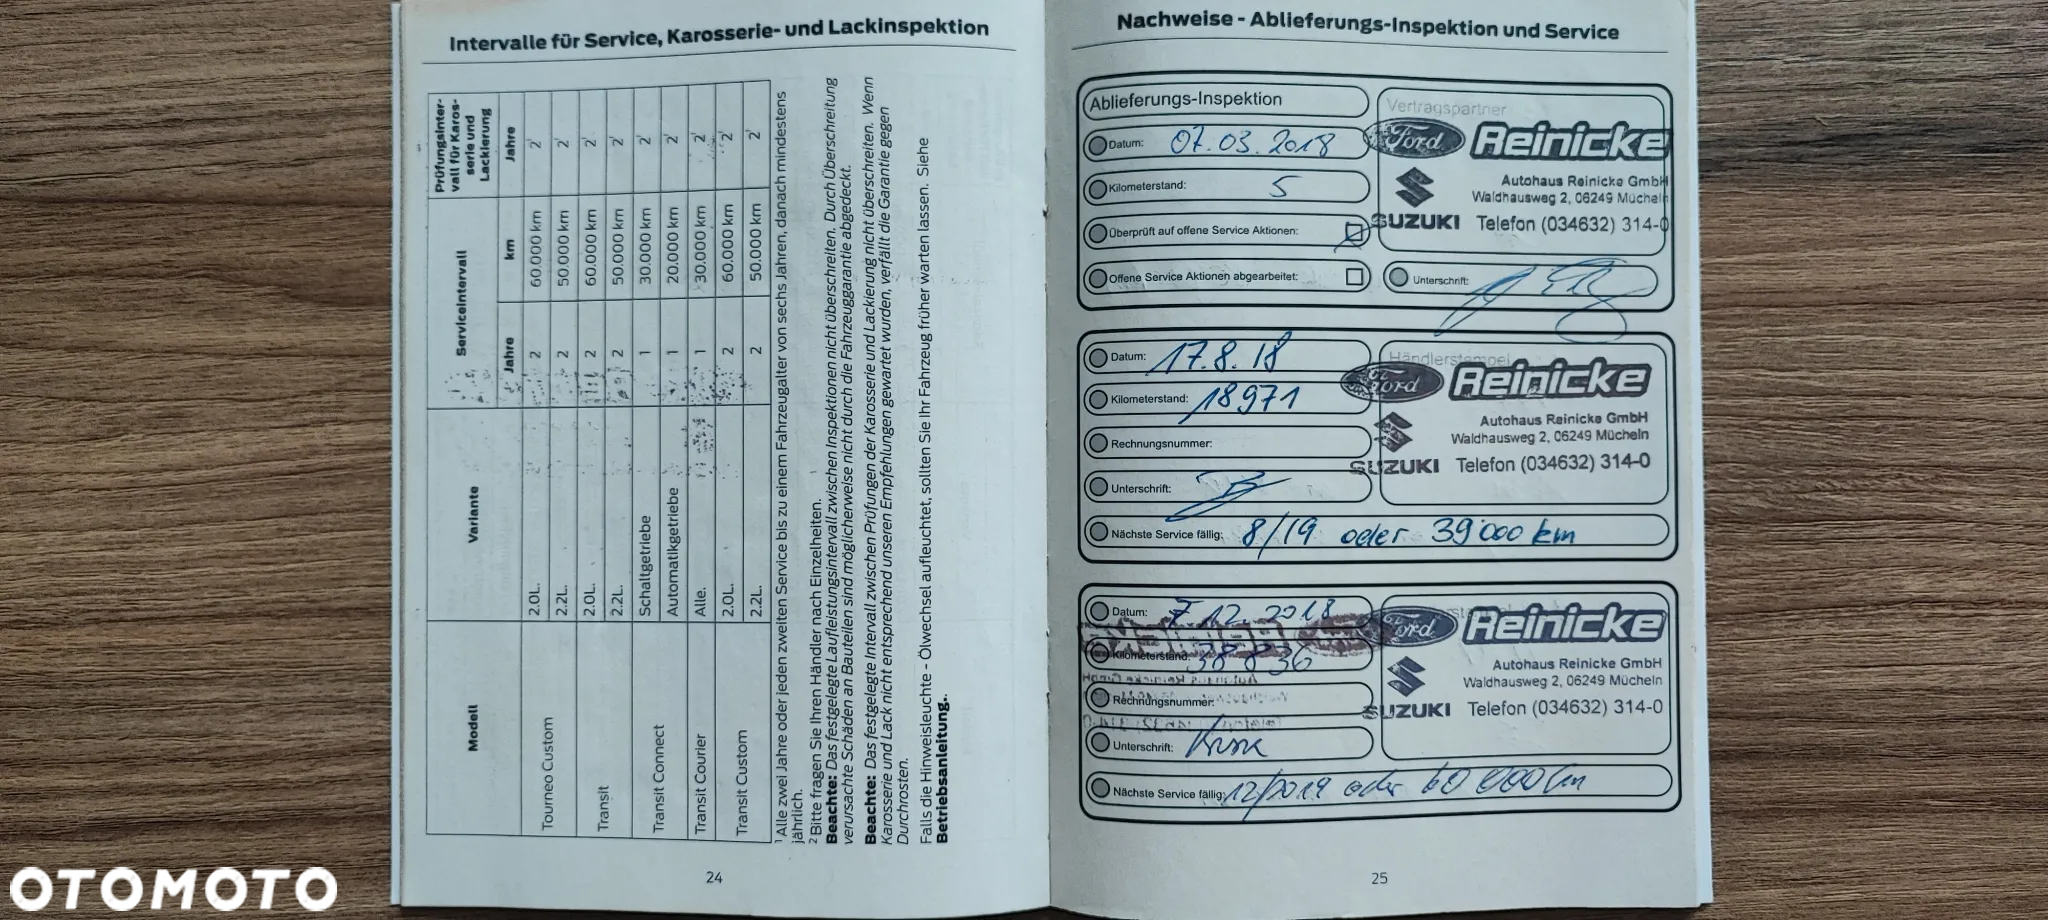 Intervalle für Service, Karosserie- und Lackinspektion
Modell Variante Serviceintervall Prüfungsinter-
vall für Karos-
serie und
Lackierung
Jahre km Jahre
Tourneo Custom 2.0L. 2 60.000 km 2¹
2.2L. 2 50.000 km 2¹
Transit 2.0L. 2 60.000 km 2¹
2.2L. 2 50.000 km 2¹
Transit Connect Schaltgetriebe 1 30.000 km 2¹
Automatikgetriebe 1 20.000 km 2¹
Transit Courier Alle. 1 30.000 km 2¹
Transit Custom 2.0L. 2 60.000 km 2¹
2.2L. 2 50.000 km 2¹
¹ Alle zwei Jahre oder jeden zweiten Service bis zu einem Fahrzeugalter von sechs Jahren, danach mindestens
jährlich.
² Bitte fragen Sie Ihren Händler nach Einzelheiten.
Beachte: Das festgelegte Laufleistungsintervall zwischen Inspektionen nicht überschreiten. Durch Überschreitung
verursachte Schäden an Bauteilen sind möglicherweise nicht durch die Fahrzeuggarantie abgedeckt.
Beachte: Das festgelegte Intervall zwischen Prüfungen der Karosserie und Lackierung nicht überschreiten. Wenn
Karosserie und Lack nicht entsprechend unseren Empfehlungen gewartet wurden, verfällt die Garantie gegen
Durchrosten.
Falls die Hinweisleuchte - Ölwechsel aufleuchtet, sollten Sie Ihr Fahrzeug früher warten lassen. Siehe
Betriebsanleitung.
24
Nachweise - Ablieferungs-Inspektion und Service
Ablieferungs-Inspektion
Datum: 07.03.2018
Kilometerstand: 5
Überprüft auf offene Service Aktionen:
Offene Service Aktionen abgearbeitet:
Vertragspartner
Ford Reinicke
Autohaus Reinicke GmbH
Waldhausweg 2, 06249 Mücheln
SUZUKI Telefon (034632) 314-0
Unterschrift:
Datum: 17.8.18
Kilometerstand: 18971
Rechnungsnummer:
Unterschrift:
Händlerstempel
Ford Reinicke
Autohaus Reinicke GmbH
Waldhausweg 2, 06249 Mücheln
SUZUKI Telefon (034632) 314-0
Nächste Service fällig: 8/19 oder 39000 km
Datum: 7.12.2018
Kilometerstand: 38836
Rechnungsnummer:
Unterschrift:
Ford Reinicke
Autohaus Reinicke GmbH
Waldhausweg 2, 06249 Mücheln
SUZUKI Telefon (034632) 314-0
Nächste Service fällig: 12/2019 oder 60 000 km
25
OTOMOTO